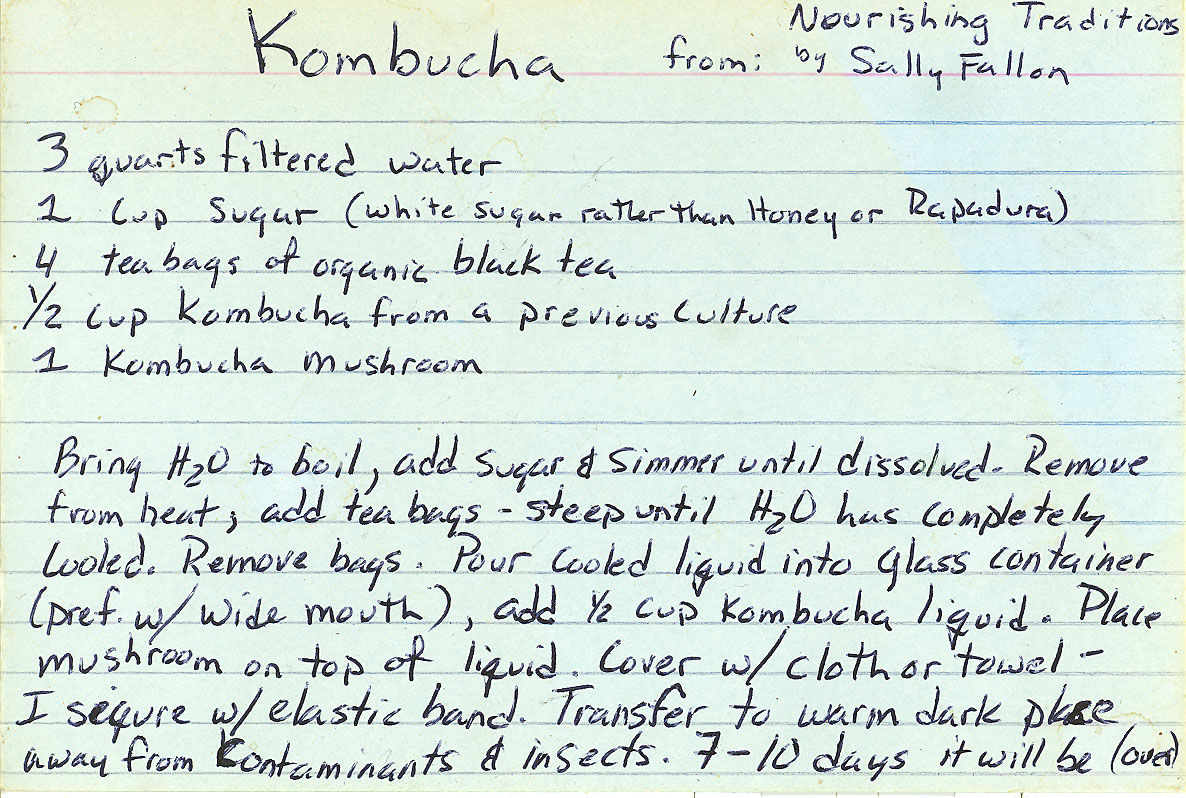 Kombucha from: Nourishing Traditions
by Sally Fallon
3 quarts filtered water
1 Cup Sugar (white sugar rather than Honey or Rapadura)
4 tea bags of organic black tea
1/2 cup Kombucha from a previous culture
1 Kombucha mushroom
Bring H2O to boil, add sugar & simmer until dissolved. Remove
from heat, add tea bags - steep until H2O has completely
cooled. Remove bags. Pour cooled liquid into glass container
(pref. w/ wide mouth), add 1/2 cup Kombucha liquid. Place
mushroom on top of liquid. Cover w/ cloth or towel -
I sequre w/ elastic band. Transfer to warm dark place
away from Contaminants & insects. 7-10 days it will be (over)